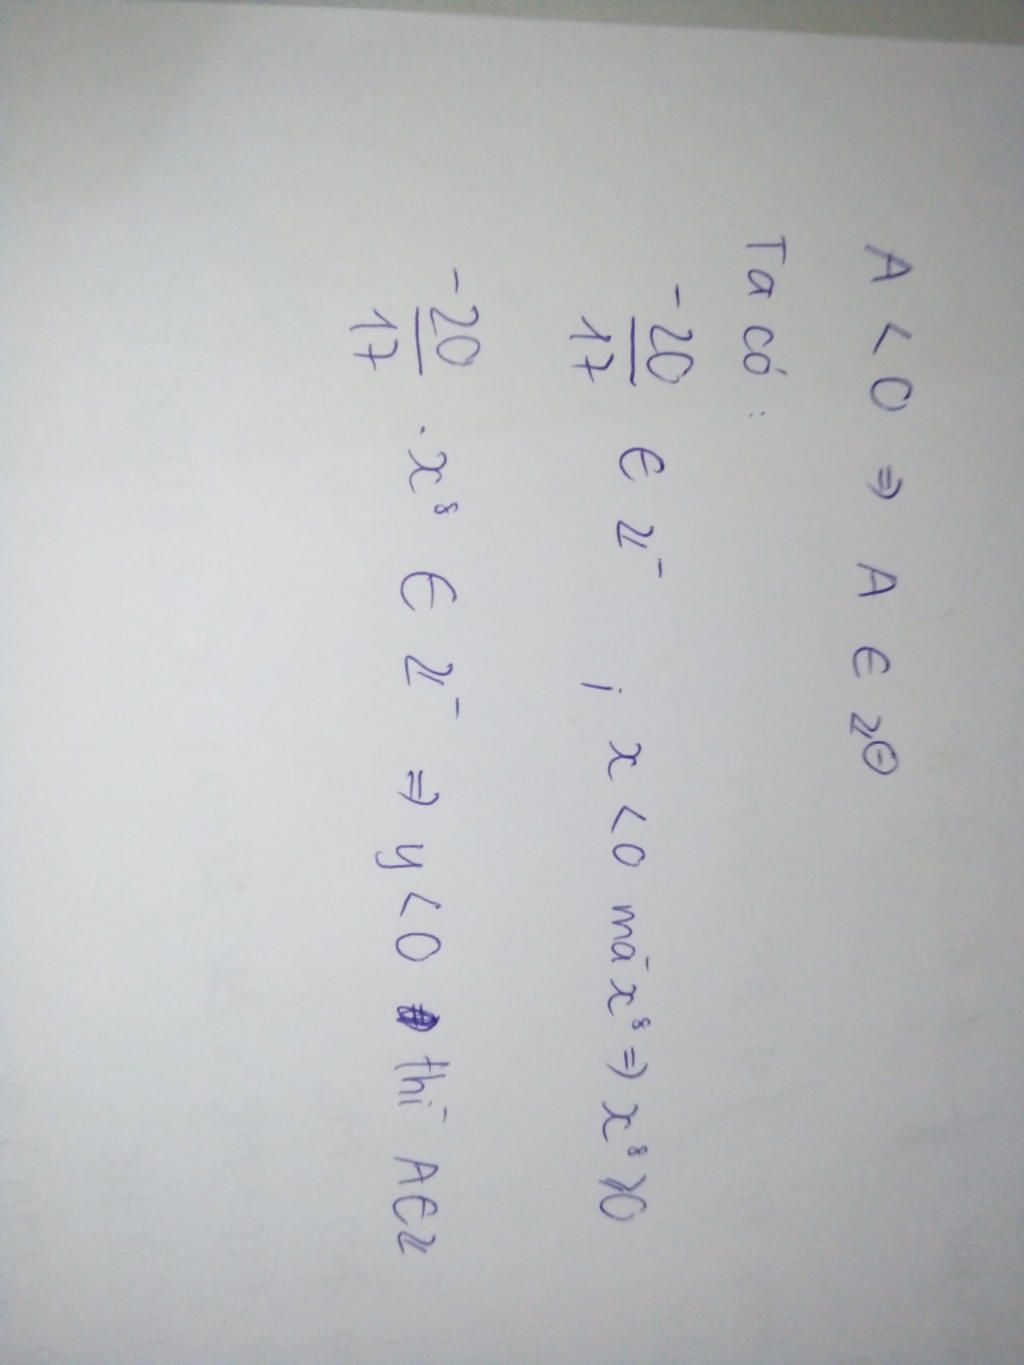 A < 0 ⇒ A ∈ Z⊖
Ta có :
-20/17 ∈ Z⁻ ; x < 0 mà x⁸ ⇒ x⁸ > 0
-20/17 . x⁸ ∈ Z⁻ ⇒ y < 0 thì A ∈ Z